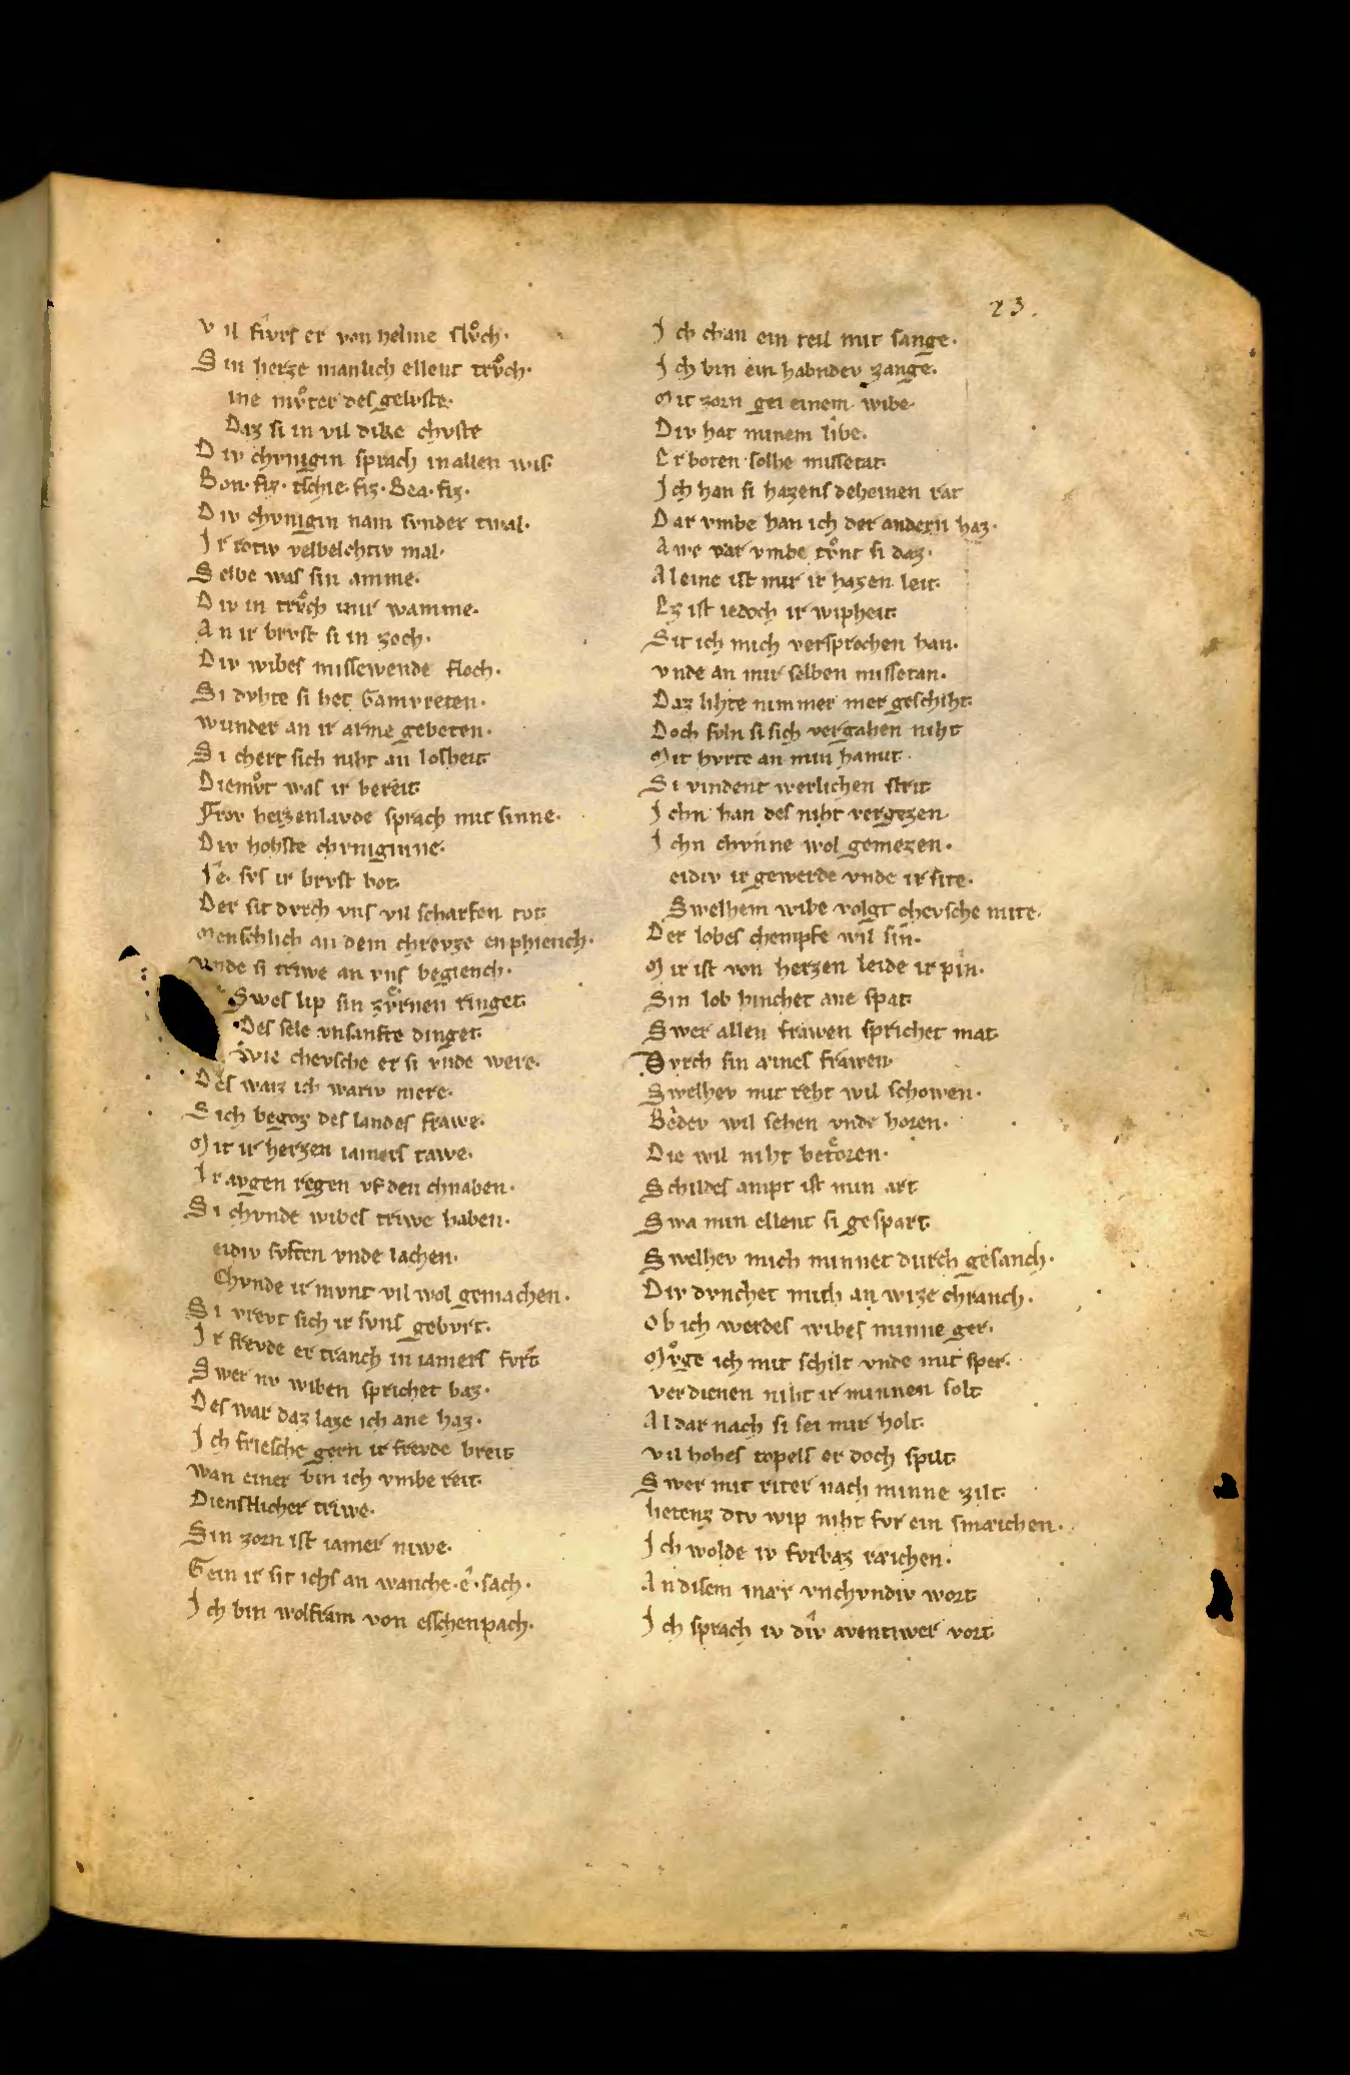 23.
Vil fivrs er von helme slůch.
Sin herze manlich ellent trůch.
ine můter des gelvste.
Daz si in vil dike chvste
Div chvnigin sprach in allen wis.
Bon. fiz. tschie. fiz. Bea. fiz.
Div chvnigin nam svnder twal.
Ir rotiv velbelohtiv mal.
Selbe was sin amme.
Div in trůch inir wamme.
An ir brvst si in zoch.
Div wibes missewende floch.
Si dvhte si het Gamvreten.
wunder an ir arme gebeten.
Si chert sich niht an losheit.
Diemůt was ir bereit.
Frov herzenlavde sprach mit sinne.
Div hohste chvniginne.
Iê. svs ir brvst bot.
Der sit dvrch vns vil scharfen tot.
Menschlich an dem chrevze enphiench.
vnde si triwe an vns begiench.
Swes lip sin zvͤrnen ringet.
Des sele vnsanfte dinget.
Swie chevsche er si vnde were.
Des waiz ich wariv mere.
Sich begoz des landes frawe.
Mit ir herzen iamers tawe.
Ir avgen regen vf den chnaben.
Si chvnde wibes triwe haben.
eidiv svften vnde lachen.
Chvnde ir mvnt vil wol gemachen.
Si vrevt sich ir svns gebvrt.
Ir frevde er tranch in iamers fvrt
Swer nv wiben sprichet baz.
Des war daz laze ich ane haz.
Ich friesche gern ir frevde breit.
wan einer bin ich vmbe reit.
Dienstlicher triwe.
Sin zorn ist iamer niwe.
Gein ir sit ichs an wanche. ê. sach.
Ich bin wolfram von esschenpach.
Ich chan ein teil mit sange.
Ich bin ein habndev zange.
Mit zorn gei einem wibe.
Div hat minem libe.
Erboten solhe missetat.
Ich han si hazens deheinen rat
Dar vmbe han ich der andern haz.
Awe var vmbe tůnt si daz.
Aleine ist mir ir hazen leit.
Ez ist iedoch ir wipheit.
Sit ich mich versprochen han.
vnde an mir selben missetan.
Daz lihte nimmer mer geschiht.
Doch svln si sich vergahen niht
Mit hvrte an min hamit.
Si vindent werlichen strit
Ichn han des niht vergezen.
Ichn chvnne wol gemezen.
eidiv ir gewerde vnde ir site.
Swelhem wibe volgt chevsche mite.
Der lobes chempfe wil sin.
Mir ist von herzen leide ir pin.
Sin lob hinchet ane spat.
Swer allen frawen sprichet mat.
Dvrch sin aines frawen.
Swelhev mit reht wil schowen.
Bedev wil sehen vnde horen.
Die wil niht betoͤren.
Schildes ampt ist min art
Swa min ellent si gespart.
Swelhev mich minnet durch gesanch.
Div dvnchet mich an wize chranch.
Ob ich werdes wibes minne ger.
Mvͦge ich mit schilt vnde mit sper.
verdienen niht ir minnen solt
Al dar nach si sei mir holt.
vil hohes topels er doch spilt.
Swer mit riter nach minne zilt.
hetenz div wip niht fvr ein smaichen.
Ich wolde iv fvrbaz raichen.
An disem mær vnchvndiv wort
Ich sprach iv div aventiwer vort.